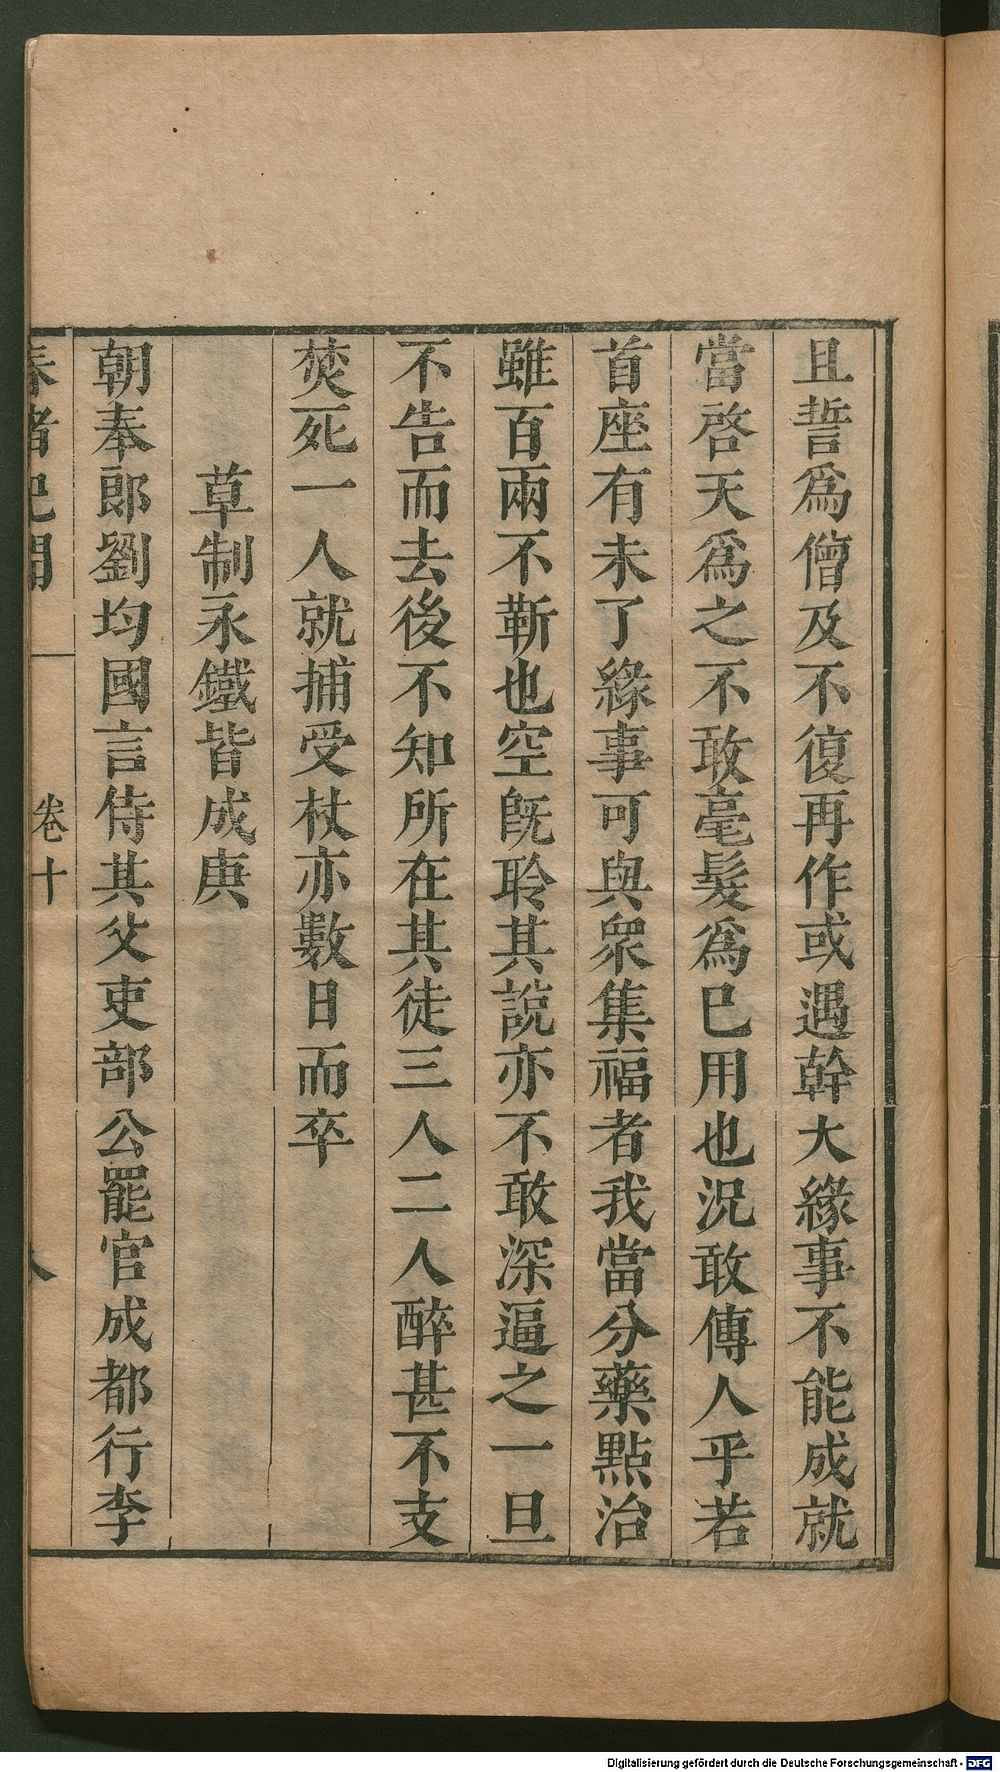 且誓爲僧及不復再作或遇幹大緣事不能成就
當啓天爲之不敢毫髮爲已用也況敢傳人乎若
首座有未了緣事可與衆集福者我當分藥點治
雖百兩不靳也空旣聆其說亦不敢深逼之一旦
不告而去後不知所在其徒三人二人醉甚不支
焚死一人就捕受杖亦數日而卒
草制永鐵皆成庚
朝奉郎劉均國言侍其父吏部公罷官成都行李
春渚紀聞
卷十
八
Digitalisierung gefördert durch die Deutsche Forschungsgemeinschaft - DFG